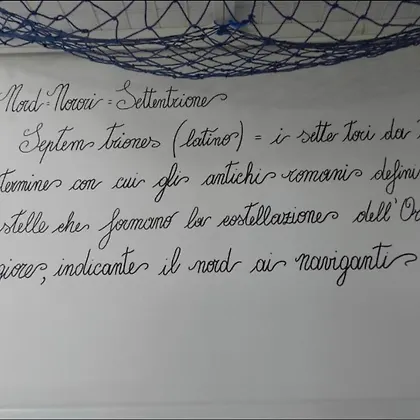 Nord = = Settentrione
Septem triones (latino) = i sette tori da
termine con cui gli antichi romani defini
stelle che formano la costellazione dell'Or
giore, indicante il nord ai naviganti